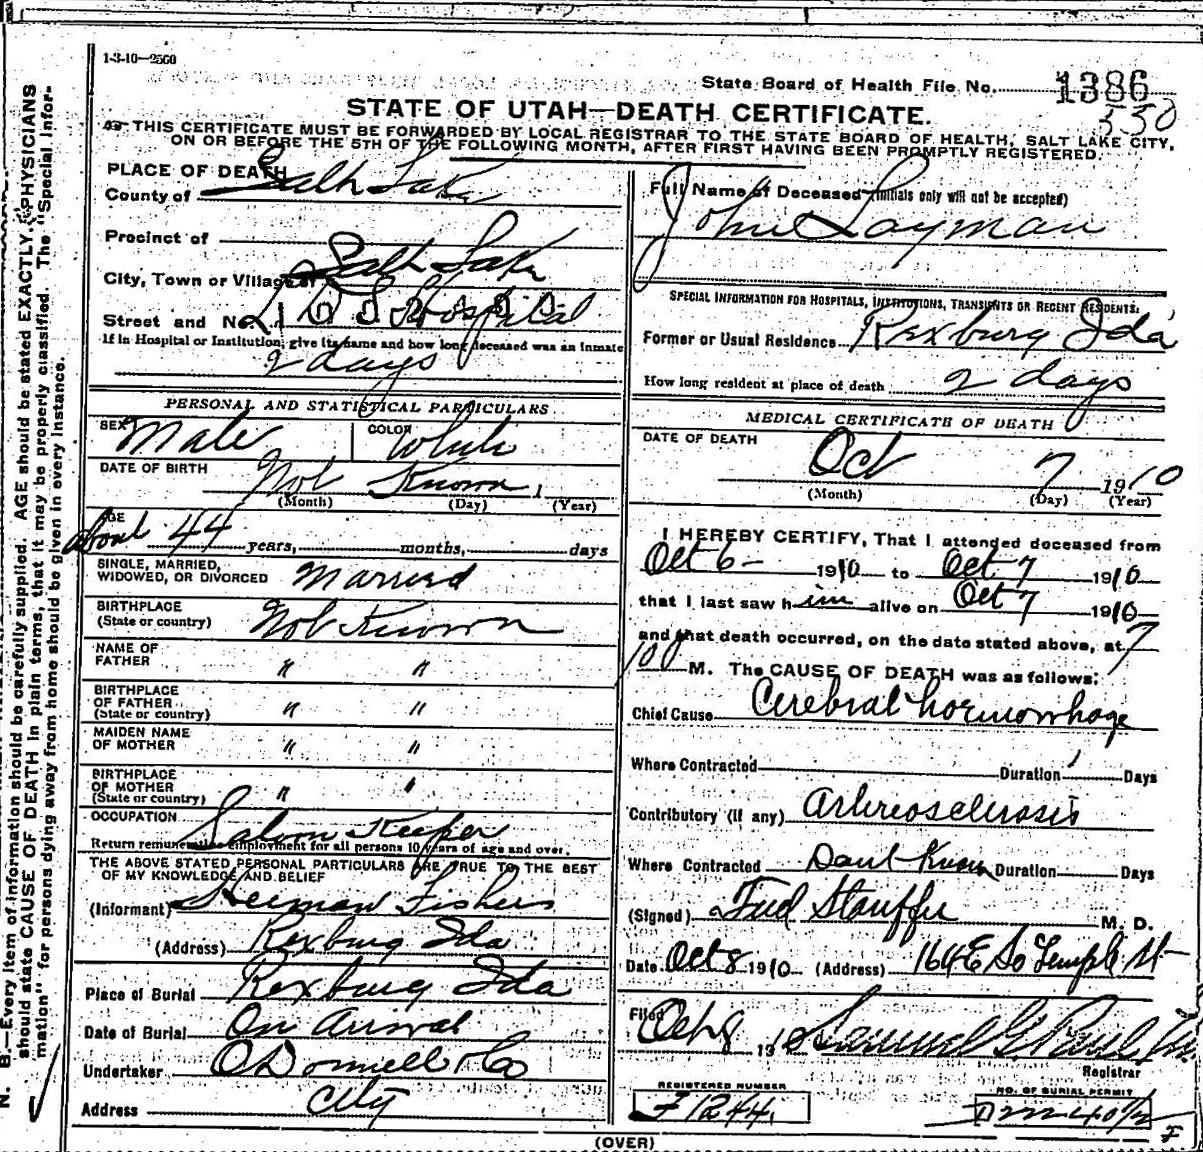 1-3-10—2500
State Board of Health File No. 1386
530
STATE OF UTAH—DEATH CERTIFICATE.
THIS CERTIFICATE MUST BE FORWARDED BY LOCAL REGISTRAR TO THE STATE BOARD OF HEALTH, SALT LAKE CITY,
ON OR BEFORE THE 5TH OF THE FOLLOWING MONTH, AFTER FIRST HAVING BEEN PROMPTLY REGISTERED.
PLACE OF DEATH
County of Salt Lake
Precinct of
City, Town or Village of Salt Lake
Street and No. L D S Hospital
If in Hospital or Institution, give its name and how long deceased was an inmate
2 days
PERSONAL AND STATISTICAL PARTICULARS
SEX Male COLOR White
DATE OF BIRTH Not Known 1
(Month) (Day) (Year)
AGE about 44 years, months, days
SINGLE, MARRIED,
WIDOWED, OR DIVORCED Married
BIRTHPLACE
(State or country) Not Known
NAME OF
FATHER " "
BIRTHPLACE
OF FATHER
(State or country) " "
MAIDEN NAME
OF MOTHER " "
BIRTHPLACE
OF MOTHER
(State or country) " "
OCCUPATION Saloon Keeper
Return remunerative employment for all persons 10 years of age and over.
THE ABOVE STATED PERSONAL PARTICULARS ARE TRUE TO THE BEST
OF MY KNOWLEDGE AND BELIEF
(Informant) Herman Fishers
(Address) Rexburg Ida
Place of Burial Rexburg Ida
Date of Burial On Arrival
Undertaker O'Donnell & Co
Address City
Full Name of Deceased (Initials only will not be accepted)
John Layman
SPECIAL INFORMATION FOR HOSPITALS, INSTITUTIONS, TRANSIENTS OR RECENT RESIDENTS:
Former or Usual Residence Rexburg Ida
How long resident at place of death 2 days
MEDICAL CERTIFICATE OF DEATH
DATE OF DEATH Oct 7 1910
(Month) (Day) (Year)
I HEREBY CERTIFY, That I attended deceased from
Oct 6 - 1910 to Oct 7 1910
that I last saw him alive on Oct 7 1910
and that death occurred, on the date stated above, at 7
M. The CAUSE OF DEATH was as follows:
Chief Cause Cerebral hoemorrhage
Where Contracted Duration Days
Contributory (if any) Artereosclerosis
Where Contracted Dont Know Duration Days
(Signed) Fred Stauffer M. D.
Date Oct 8 1910 (Address) 164 E So Temple St
Filed Oct 8 19 Samuel G. Paul
Registrar
REGISTERED NUMBER
F 1244
NO. OF BURIAL PERMIT
(OVER)
N. B.—Every item of information should be carefully supplied. AGE should be stated EXACTLY. PHYSICIANS
should state CAUSE OF DEATH in plain terms, that it may be properly classified. The "Special Infor-
mation" for persons dying away from home should be given in every instance.